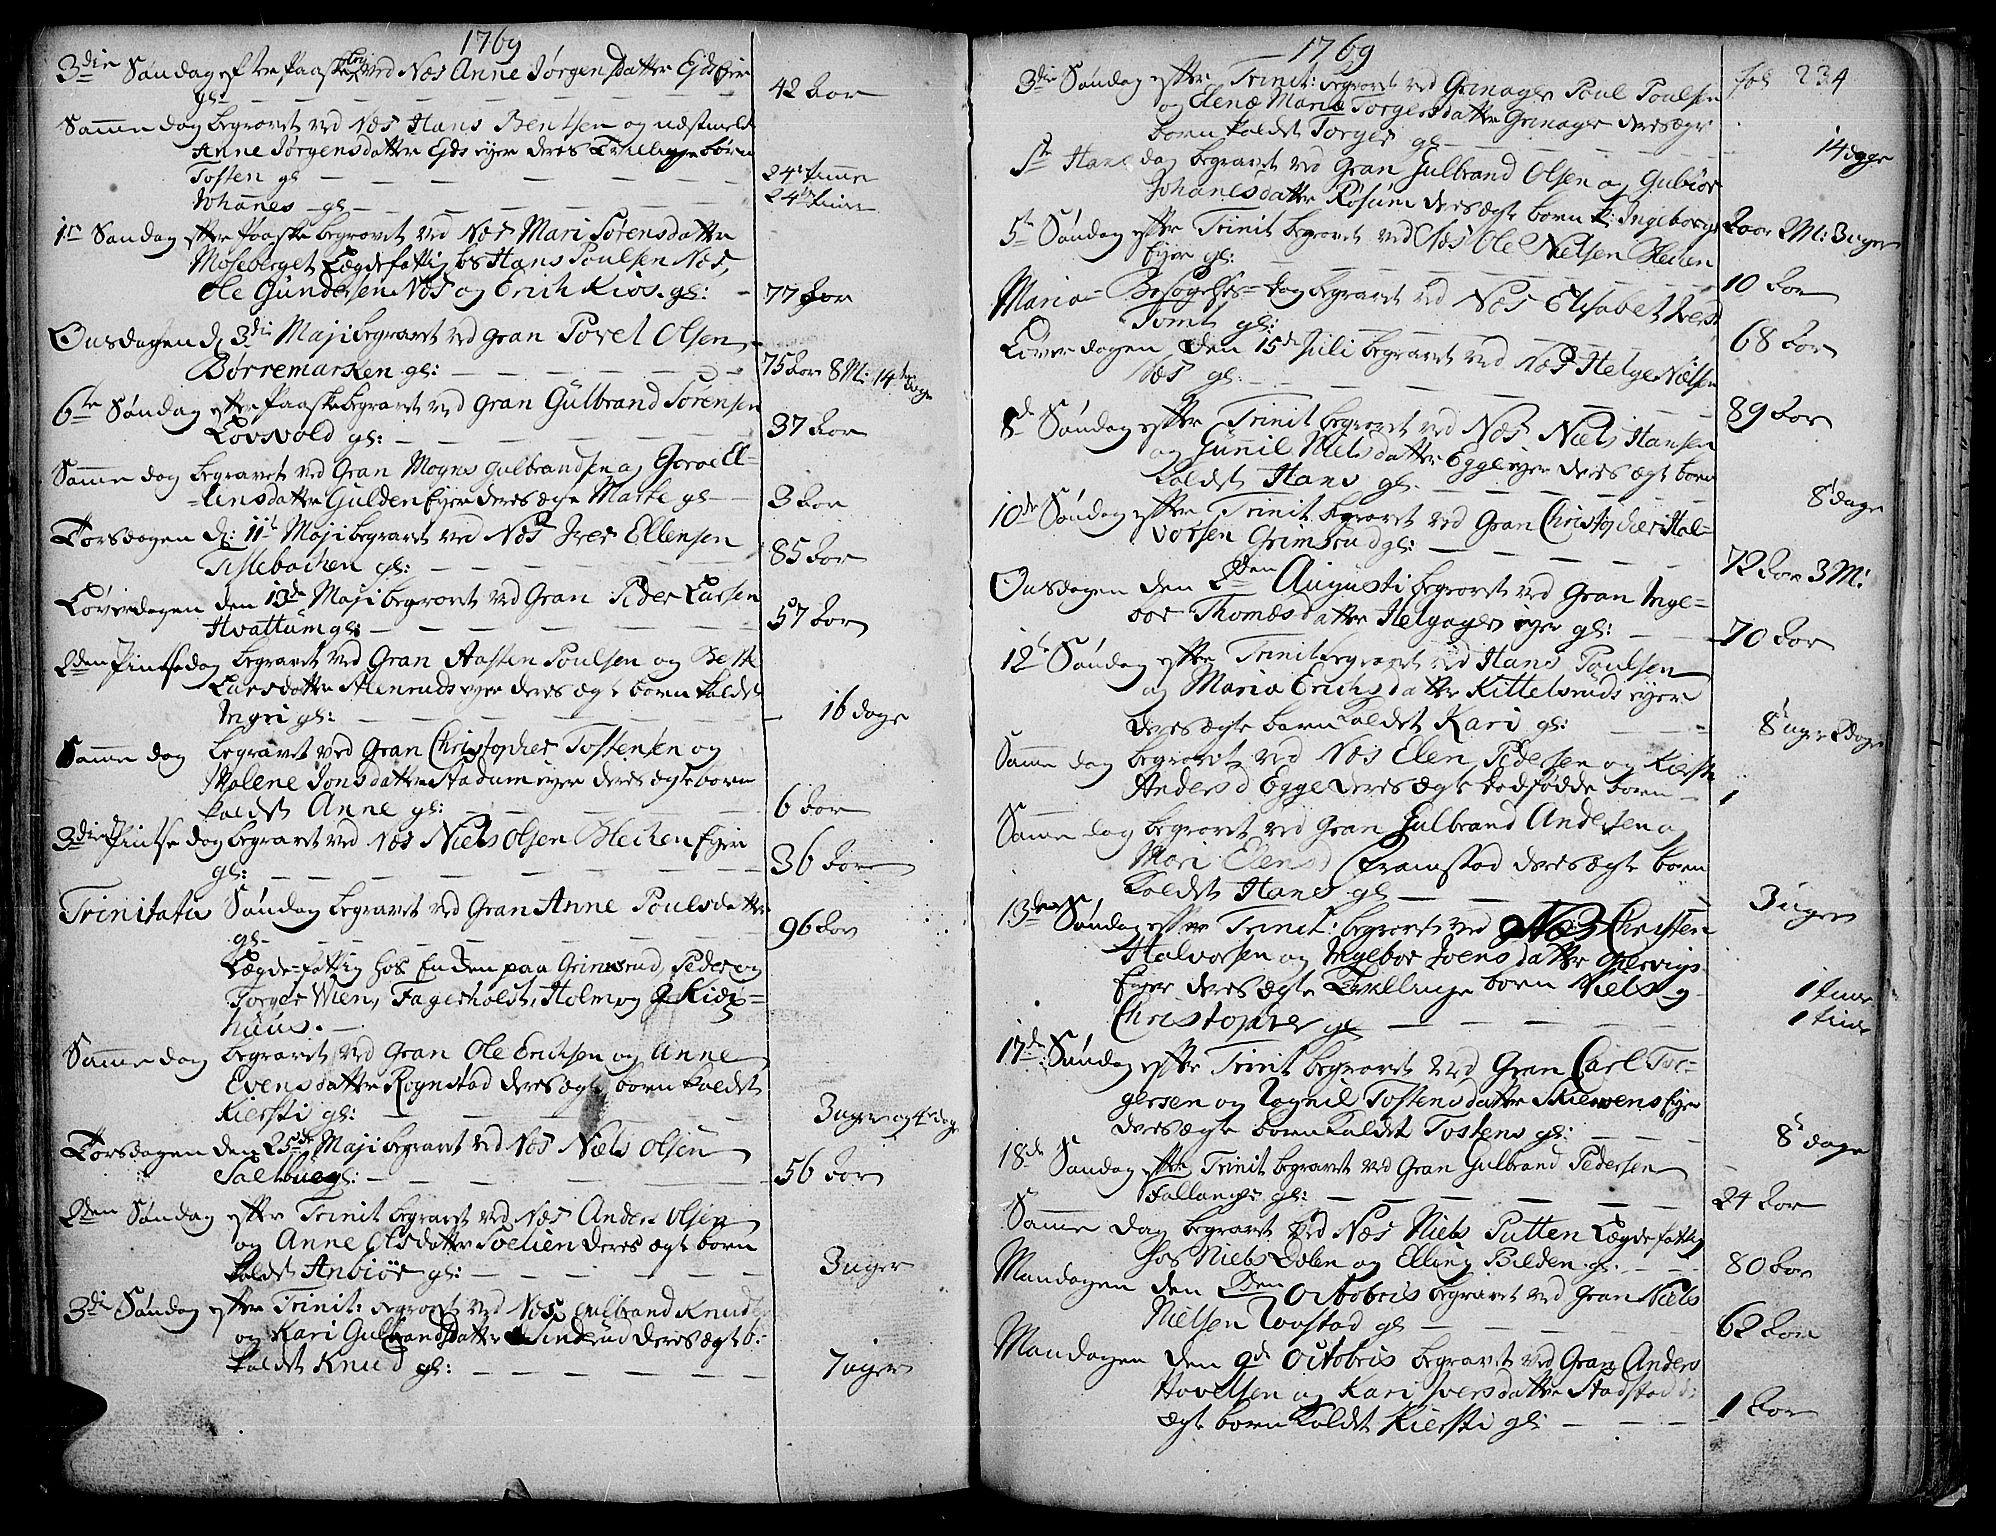 1769
3die Søndag efter Paaske begr. ved Næs Anne Jørgensdatter Eidseier
gl — 42 Aar
Samme dag begravet ved Næs Hans Bentsen og næstmelte
Anne Jørgensdatter Eids eyer deres Tvillinge børn
Tosten gl — 24 timme
Johanes gl — 24 timme
1te Søndag efter Paaske begravet ved Næs Mari Sørensdatter
Moseberget Lægdefattig hos Hans Poulsen Næs,
Ole Gundersen Næs og Erich Kios. gl: — 77 Aar
Onsdagen d. 3die Maji begravet ved Gran Povel Olsen
Børremarken gl: — 75 Aar 8 M: 14 dage
6te Søndag efter Paaske begravet ved Gran Gulbrand Sørensen
Lovsvold gl: — 37 Aar
Samme dag begravet ved Gran Mogns Gulbrandsen og Goroe El=
=lensdatter Gulden Eyer deres ægte Marte gl — 3 Aar
Torsdagen d: 11te Maji begravet ved Næs Iver Ellensen
Tislebachen gl: — 85 Aar
Løverdagen den 13de Maji begravet ved Gran Peder Larsen
Hvattum gl: — 57 Aar
2den Pintsedag begravet ved Gran Aasten Poulsen og Berte
Larsdatter Alenruds eyer deres ægte barn kaldet
Ingri gl: — 16 dage
Samme dag begravet ved Gran Christopher Tostensen og
Malene Jonsdatter Stadum eyer deres ægte barn
kaldet Anne gl: — 6 Aar
3die Pintsedag begravet ved Næs Niels Olsen Blechen Eyer
gl: — 36 Aar
Trinitatis Søndag begravet ved Gran Anne Poulsdatter
gl — 96 Aar
Lægde-fattig hos Enden paa Grimsrud, Peder og
Torger Wien, Fagerholst, Holm og
huus. —
Samme dag begravet ved Gran Ole Erichsen og Anne
Evensdatter Rognstad deres ægte barn kaldet
Kiersti gl: — 3 uger og 4 dage
Torsdagen den 25de Maji begravet ved Næs Niels Olsen
gl: — 56 Aar
2den Søndag efter Trinit begravet ved Næs Anders Olsen
og Anne Olsdatter Soelien deres ægte barn
kaldet Anbiør gl: — 3 uger
3die Søndag efter Trinit: begravet ved Næs Gulbrand Knuds
og Kari Gulbrandsdatter Sinderud deres ægte b:
kaldet Knud gl: — 7 uger
1769
fol 234
3die Søndag efter Trinit: begravet ved Grinager Poul Poulsen
og Elene Maria Torgersdatter Grinager deres ægte
barn kaldet Torger gl — 14 dage
St Hans dag begravet ved Gran Gulbrand Olsen og Gubiør
Johanesdatter Røsum deres ægte barn k: Ingeborg 2 Aar 2 M: 3 uger
5te Søndag efter Trinit begravet ved Næs Ole Nielsen Blechen
Eyer gl: — 10 Aar
Maria= Besøgelses= dag begravet ved Næs Elisabet Ivers
Tomt gl: — 68 Aar
Løverdagen den 15de Juli begravet ved Næs Helge Nielsen
Næs gl: — 89 Aar
8de Søndag efter Trinit begravet ved Næs Niels Hansen
og Gunnil Nielsdatter Egge eyer deres ægte barn
kaldet Hans gl. — 8 dage
10de Søndag efter Trinit begravet ved Gran Christopher Hal=
vorsen Grimsrud gl: — 72 Aar 3 M:
Onsdagen den 2den Augusti begravet ved Gran Inge=
bor Thomæsdatter Helgager eyer gl: — 70 Aar
12te Søndag efter Trinit begravet ved Hans Poulsen
og Maria Erichsdatter Kittelsruds eyer
deres ægte barn kaldet Kari gl: — 8 uger 2 dage
Samme dag begravet ved Næs Elen Pedersen og Kiersti
Andersd Egge deres ægte dødfødde barn — 1
Samme dag begravet ved Gran Gulbrand Andersen og
Mari Elensd Framstad deres ægte barn
kaldet Hans gl — 3 uger
13de Søndag efter Trinit: begravet ved Næs Christen
Halvorsen og Ingebor Ivensdatter
Eyer deres ægte Tvillinge børn Niels og — 1 time
Christopher gl — 1 time
17de Søndag efter Trinit begravet ved Gran Carl Tor=
gersen og Rognil Tostensdatter Skiervens Eyer
deres ægte barn kaldet Tostens gl: — 8 dage
18de Søndag efter Trinit begravet ved Gran Gulbrand Pedersen
Fallange gl: — 24 Aar
Samme dag begravet ved Næs Niels Putten Lægdefattig
hos Niels Dolen og Elling Bilden gl: — 80 Aar
Mandagen den 2den Octobris begravet ved Gran Niels
Nielsen Rovstad gl — 62 Aar
Mandagen den 9de Octobris begravet ved Gran Anders
Hovelsen og Kari Iversdatter Stadstad d:
ægte barn kaldet Kiersti gl: — 1 Aar